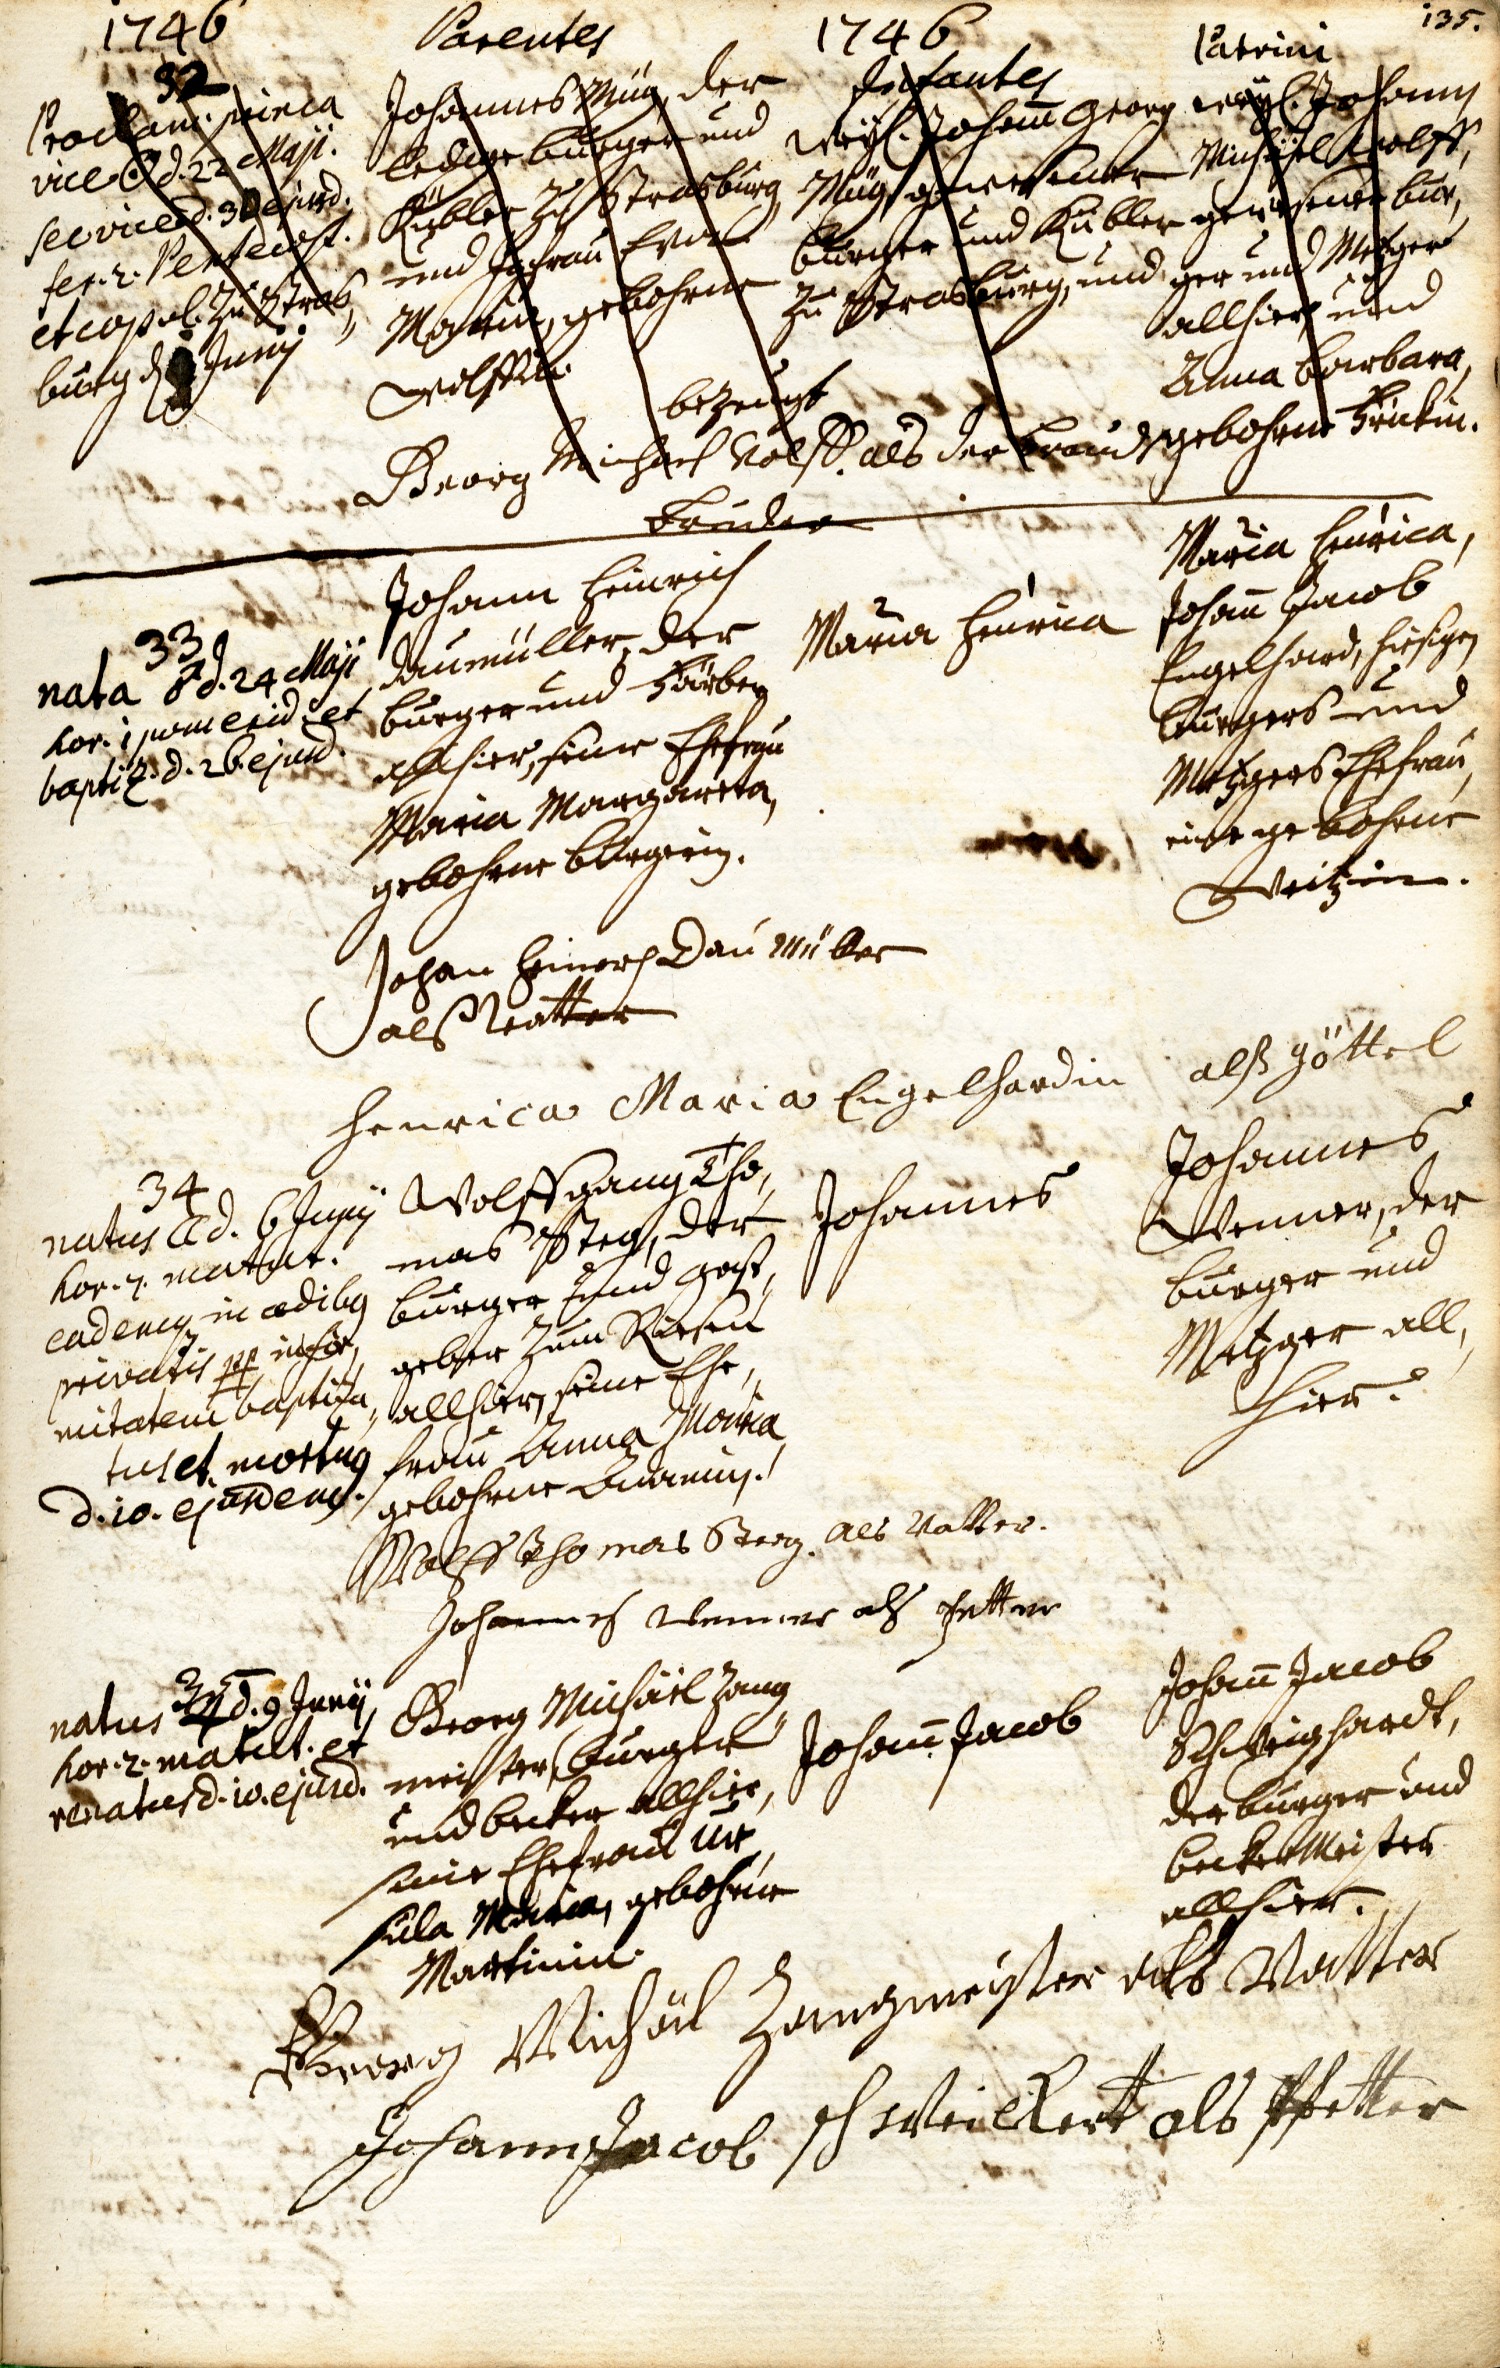 135.
1746
Parentes
1746
Infantes
Patrini
32
Proclam. prima
vice d. 22 Maji.
sec vice d. 30 ejusd.
fer. 2. Pentecost.
et copul. zu Stras,
burg d. Junij
Johannes Müg, der
ledige burger und
Kübler zu Strasburg,
und Jgfrau Eva
Maria, gebohrne
Wolffin.
weyl. Johann Georg
Müg, gewesener
burger und Kübler
zu Strasburg, und
weyl. Johann
Michael Wolff,
gewesener bur,
ger und Metzger
allhier, und
Anna Barbara,
gebohrne Finckin.
bezeugt
Georg Michael Wolff. als der braud
bruder
33
nata d. 24 Maji
hor. 1 pomerid. et
baptiz. d. 26. ejusd.
Johann Heinrich
Daumüller, der
burger und Färber
allhier, seine Ehefrau
Maria Margareta,
gebohrne burgerin.
Maria Henrica
Maria Henrica,
Johann Jacob
Engelhard, hiesigen
burgers und
Metzgers Ehefrau,
eine gebohrne
Veitzin.
Johan Heinerch Dau Müller
als Vatter
Henrica Maria Engelhardin alß göttel
34
natus d. 6 Junij
hor. 7. matut.
eadem in aedibg
privatis pp infir,
mitatem baptiza,
tus et mortug
d. 10. ejusdem.
Wolffgang Tho,
mas Steg, der
burger und Gast,
geber zum Riesen
allhier, seine Ehe,
frau Anna Maria
gebohrne
Johannes
Johannes
Wenner, der
burger und
Metzger all,
hier.
Wolff Thomas Steeg. als Vatter.
Johannes Wenner als Pfetter
35
natus d. 9 Junij
hor. 2. matut. et
renatus d. 10. ejusd.
Georg Michael Zang,
meister, burger
und becker allhier,
seine Ehefrau Ur,
sula Maria, gebohrne
Martinin.
Johann Jacob
Johann Jacob
Schweighardt,
der burger und
becker Meister
allhier.
Georg Michäel Zangmeister als Vatter
Johann Jacob schweickert als Pfetter